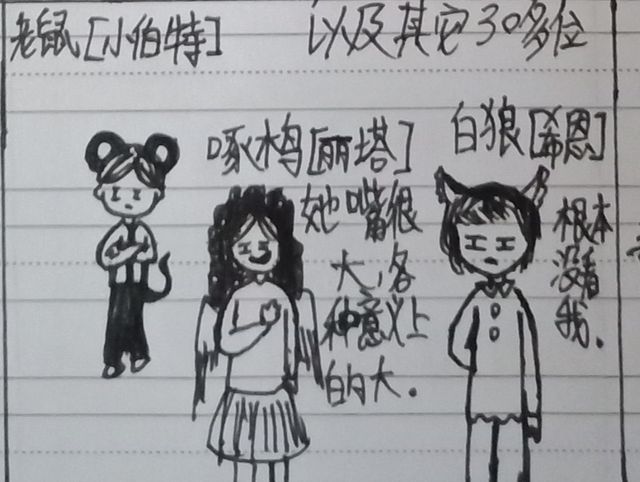 老鼠[小伯特]
以及其它30多位
啄木鸟[丽塔]
她嘴很
大,各
种意义上
的大.
白狼[希恩]
根本
没看
我.